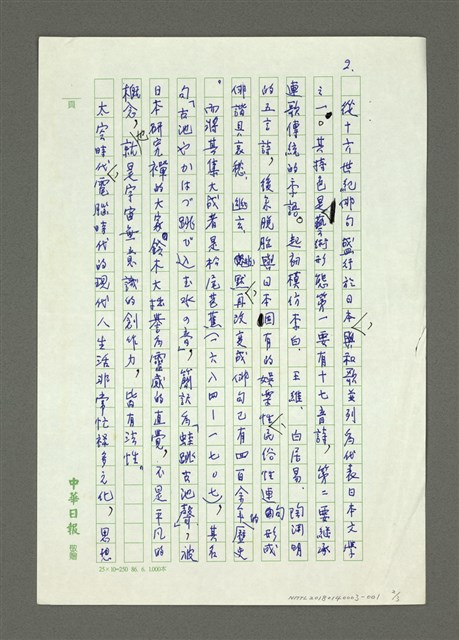 2.
從十六世紀俳句盛行於日本,與和歌並列為代表日本文學
之一。其特色是藝術形態第一要有十七音詩,第二要繼承
連歌傳統的季語。起初模仿李白、王維、白居易、陶淵明
的五言詩,後來脫胎與日本固有的娛樂性民俗性連句形成
俳諧具哀愁、幽玄、幽默再改良成俳句已有四百余年的歷史
。而將其集大成者是松尾芭蕉(一六八四—一七〇七),其名
句「古池やかはづ跳び込む水の音」,簡訳為「蛙跳古池聲」,被
日本研究禪的大家鈴木大拙譽為靈感的直覺,不是平凡的
概念,也就是宇宙無意識的創作力,皆有法性。
太空時代、電腦時代的現代人生活非常忙祿多元化,思想
頁
中華日報
25×10=250 86. 6. 1,000本
NMTL20180240003-001
2/3